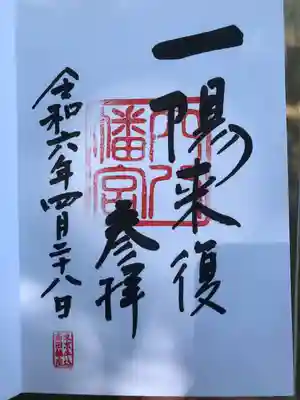 一陽来復
参拝
幡宮
令和六年四月二十八日